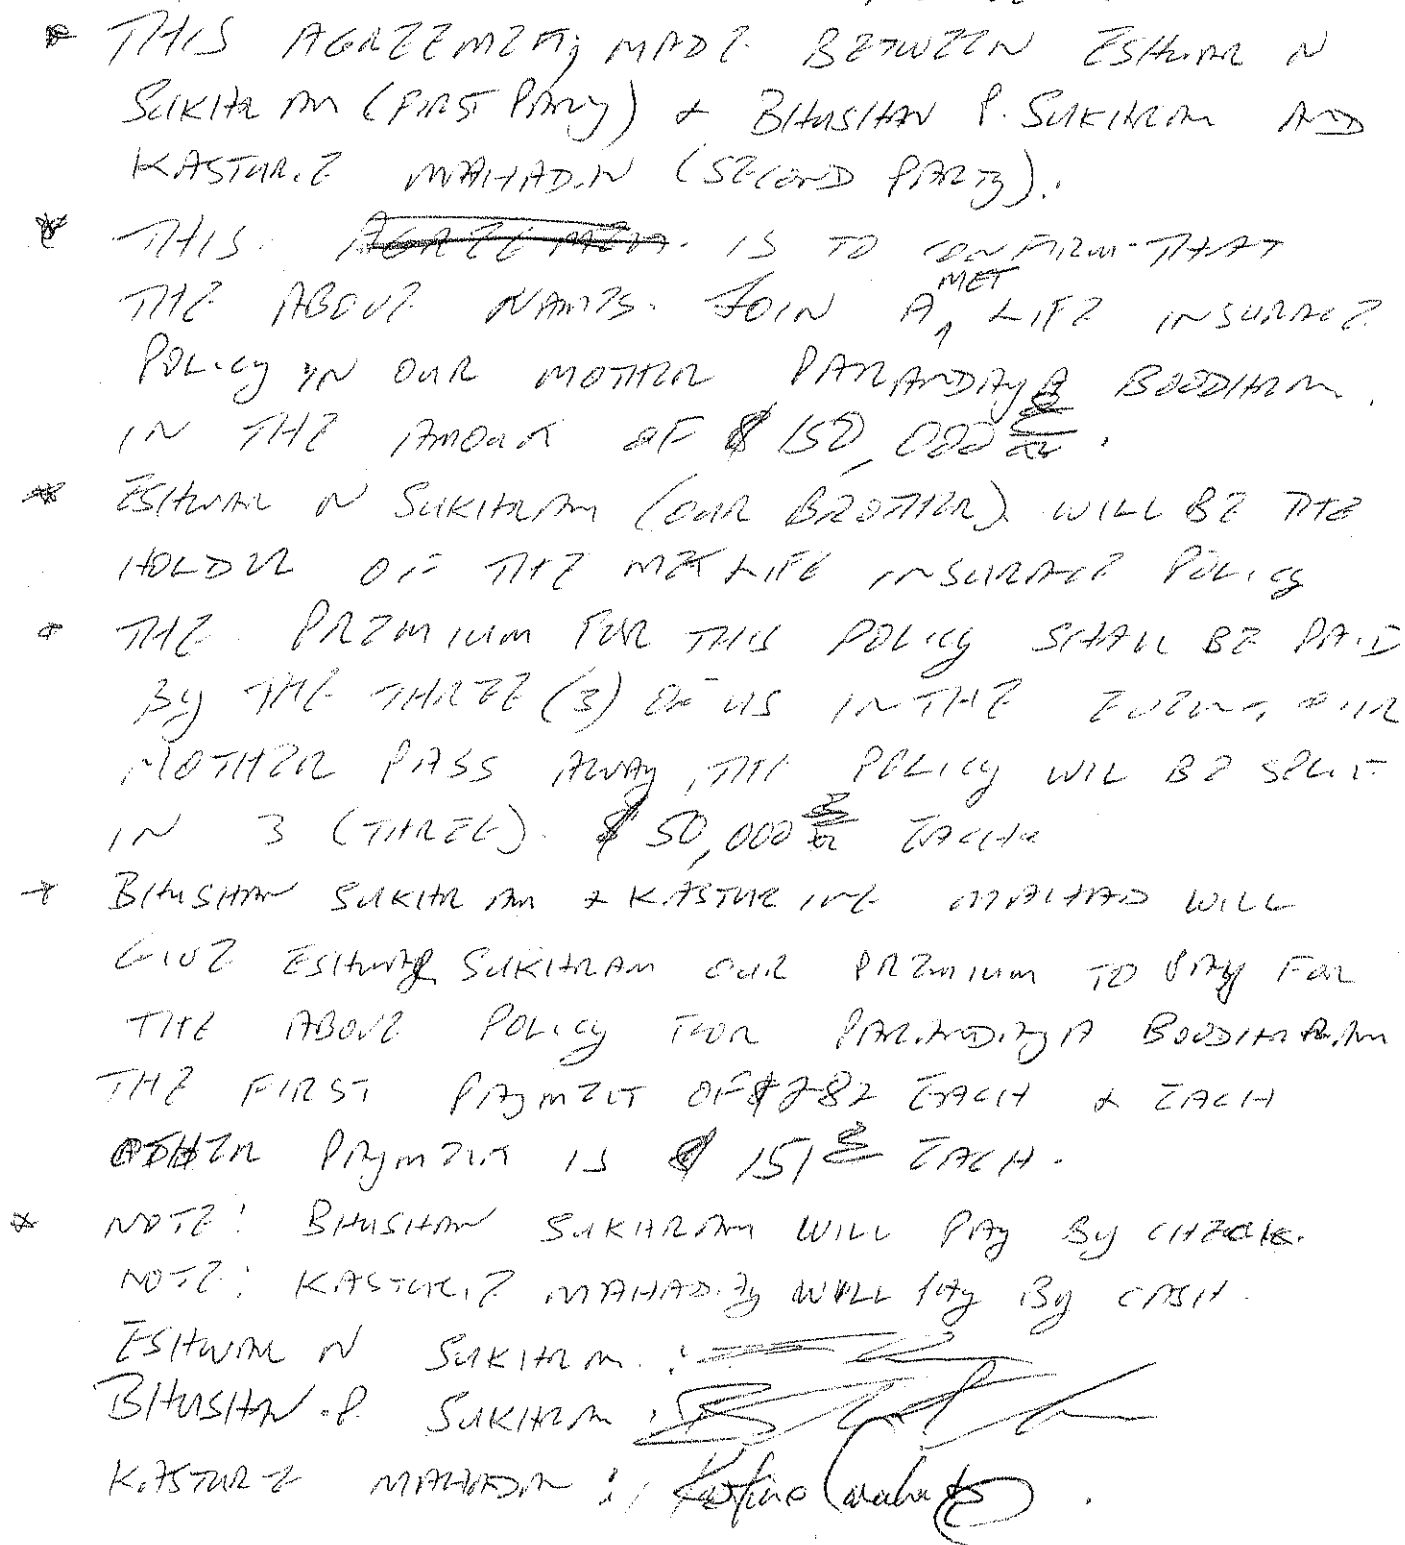 * THIS AGREEMENT, MADE BETWEEN ESHWAR N
SUKHRAM (FIRST PARTY) & BHUSHAN P. SUKHRAM AND
KASTURIE MAHADIN (SECOND PARTY).
* THIS. AGREEMENT. IS TO CONFIRM THAT
THE ABOVE NAMES. JOIN A MET LIFE INSURACE
POLICY IN OUR MOTHER PARANDAYA BOODHRAM.
IN THE AMOUNT OF $150,000 00/xx.
* ESHWAR N SUKHRAM (OUR BROTHER) WILL BE THE
HOLDER OF THE MET LIFE INSURACE POLICY
* THE PREMIUM FOR THIS POLICY SHALL BE PAID
BY THE THREE (3) OF US IN THE EVENT, OUR
MOTHER PASS AWAY, THE POLICY WIL BE SPLIT
IN 3 (THREE). $50,000 00/xx EACH
* BHUSHAN SUKHRAM & KASTURINE MAHAD WILL
GIVE ESHWAR SUKHRAM OUR PREMIUM TO PAY FOR
THE ABOVE POLICY FOR PARANDAYA BOODHRAM
THE FIRST PAYMENT OF $282 EACH & EACH
OTHER PAYMENT IS $151 EACH.
* NOTE: BHUSHAN SUKHRAM WILL PAY BY CHECK.
NOTE: KASTURIE MAHADIN WILL PAY BY CASH.
ESHWAR N SUKHRAM:
BHUSHAN.P. SUKHRAM:
KASTURIE MAHADIN: